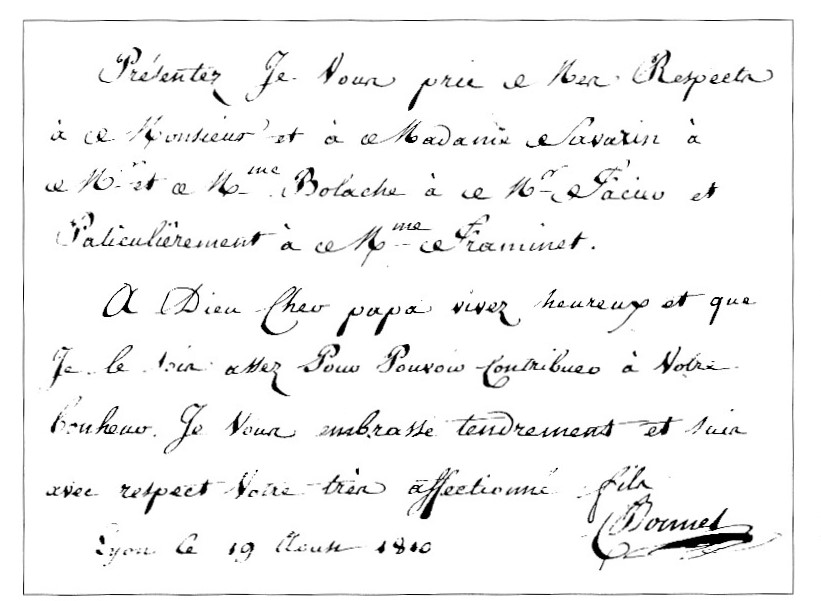 Présentez Je Vous prie Mes Respects
à Monsieur et à Madame Savarin à
Mr et Mme Bolache à Mr et
Paticulièrement à Mme Framinet.
A Dieu Cher papa vivez heureux et que
Je le sois assez Pour Pouvoir Contribuer à Votre
bonheur. Je Vous embrasse tendrement et suis
avec respect Votre très affectionné fils
Bonnet
Lyon le 19 Aoust 1810